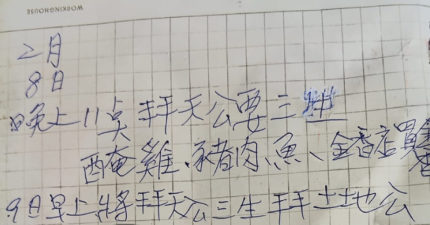 WORKINGHOUSE
2月
8日
晚上11点拜天公要三牲
醃雞、豬肉、魚、金香店買
9日早上將拜天公三生拜土地公